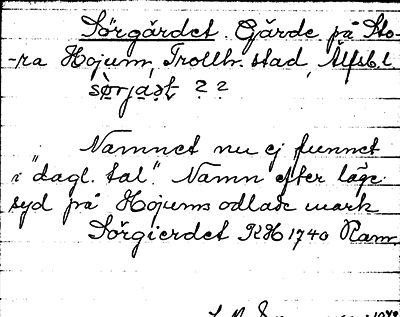 Sörgärdet. Gärde på Sto-
-ra Hojum, Trollh. stad, Älfsb.l.
sö̀rjaṣt ? ?
Namnet nu ej funnet
i "dagl. tal". Namn efter läge
syd på Hojums odlade mark
Sörgierdet KH 1740 Ram